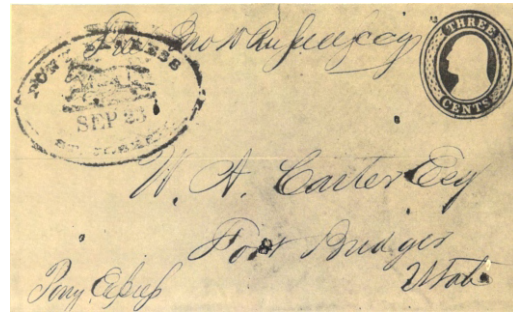 PONY EXPRESS
SEP 23
ST. JOSEPH
THREE
CENTS
W. A. Carter Esq
Fort Bridger
Utah
Pony Express